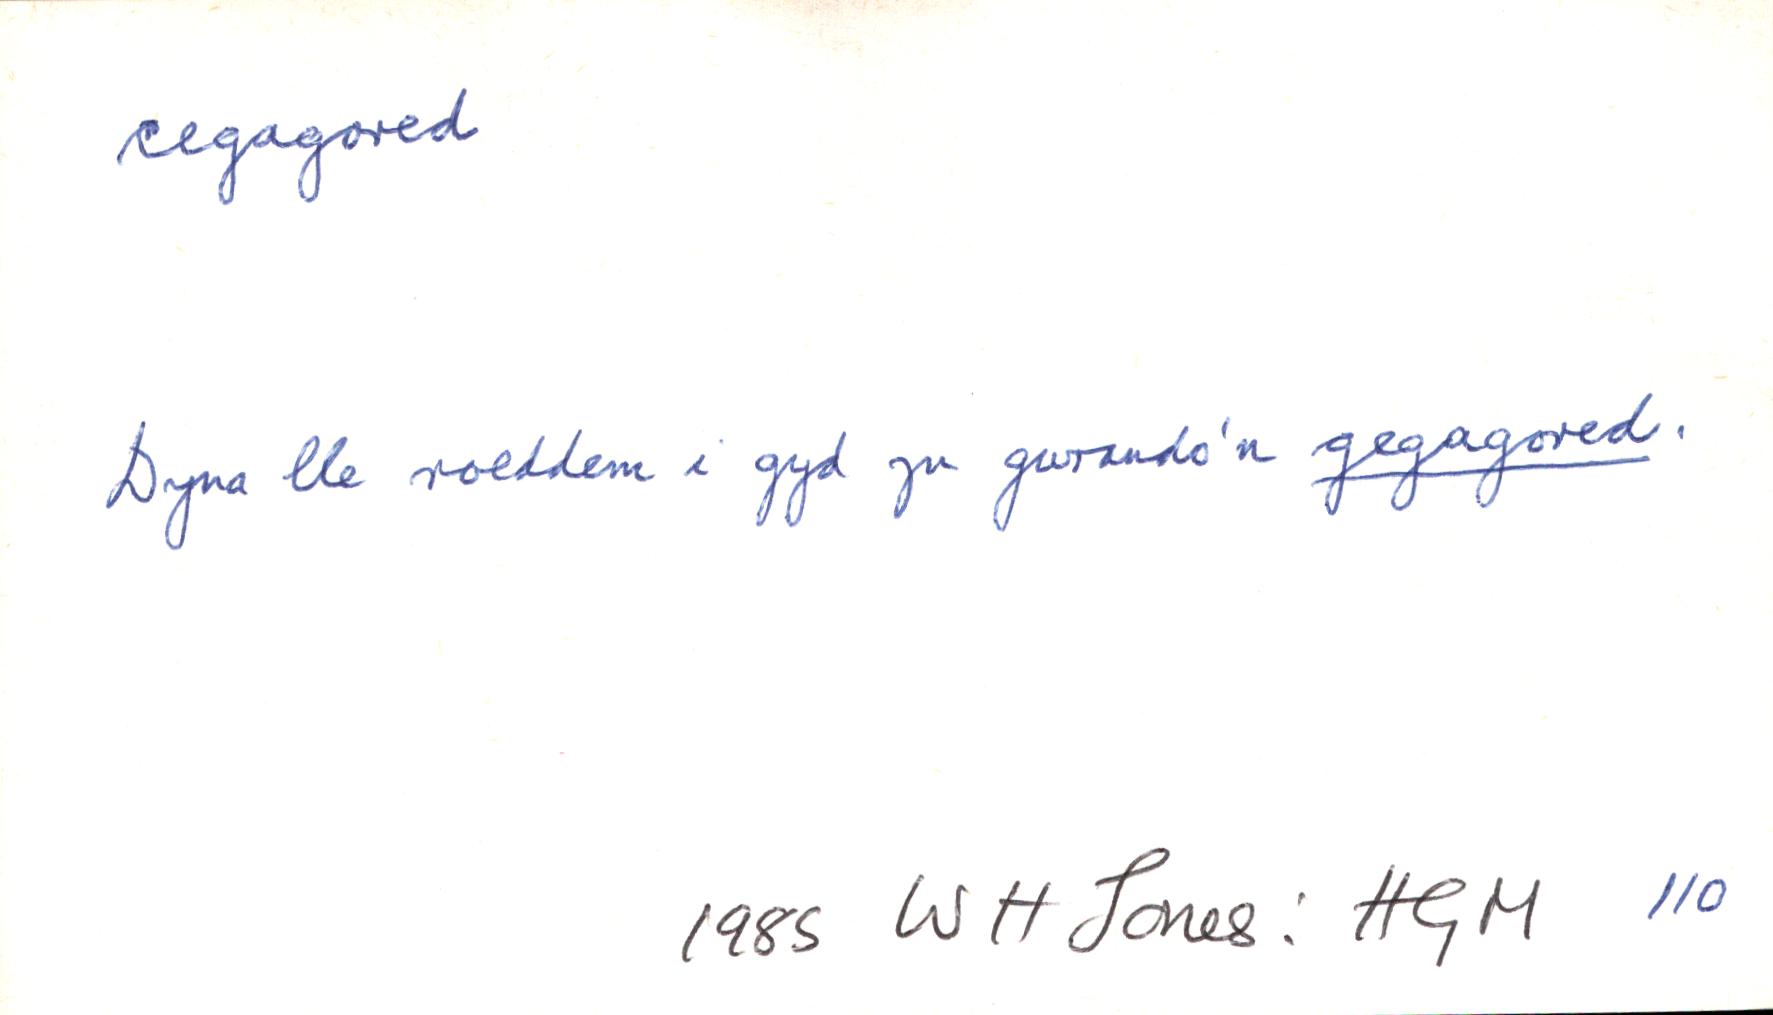 cegagored
Dyna lle roeddem i gyd yn gwrando'n gegagored.
1985 W H Jones: HGM 110